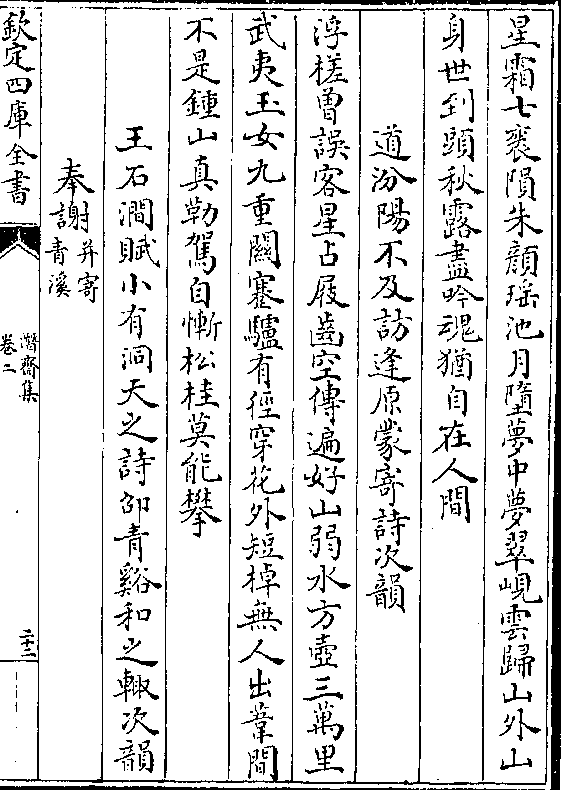 星霜七袠隕朱顔瑶池月墮夢中夢翠峴雲歸山外山
身世到頭秋露盡吟魂猶自在人間
道汾陽不及訪逢原蒙寄詩次韻
浮槎曽誤客星占屐齒空傳遍好山弱水方壺三萬里
武夷玉女九重關蹇驢有徑穿花外短棹無人出葦間
不是鍾山真勒駕自慚松桂莫能攀
王石澗賦小有洞天之詩邵青谿和之輙次韻
奉謝并寄青溪
欽定四庫全書
潛齋集
卷二
二十二